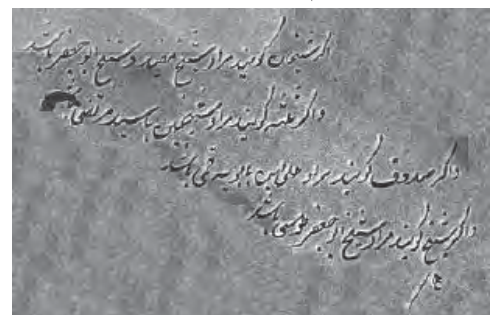 اگر شیخین گویند مراد شیخ مفید و شیخ ابو جعفر باشد
و اگر ثلثه گویند مراد شیخین با سید مرتضی
و اگر صدوق گویند مراد علی ابن بابویه قمی باشد
و اگر شیخ گویند مراد شیخ ابو جعفر طوسی باشد